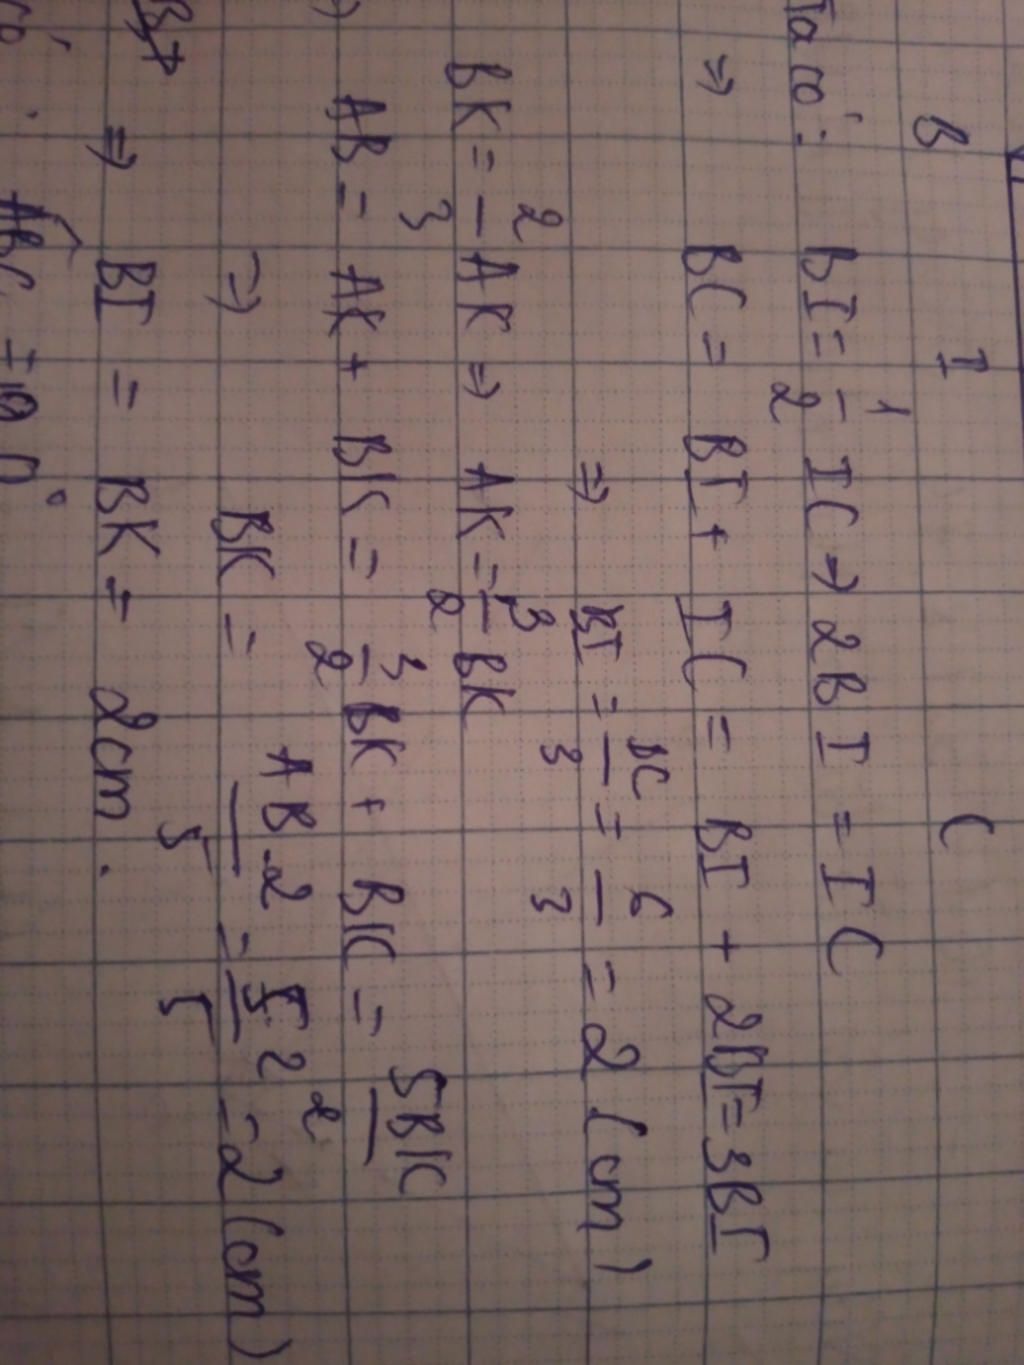 B I C
Ta có: BI = 1/2 IC → 2BI = IC
⇒ BC = BI + IC = BI + 2BI = 3BI
⇒ BI = BC/3 = 6/3 = 2 (cm)
BK = 2/3 AK ⇒ AK = 3/2 BK
AB = AK + BK = 3/2 BK + BK = 5BK/2
⇒ BK = AB.2/5 = 5.2/5 = 2 (cm)
⇒ BI = BK = 2cm.
có: ABC =